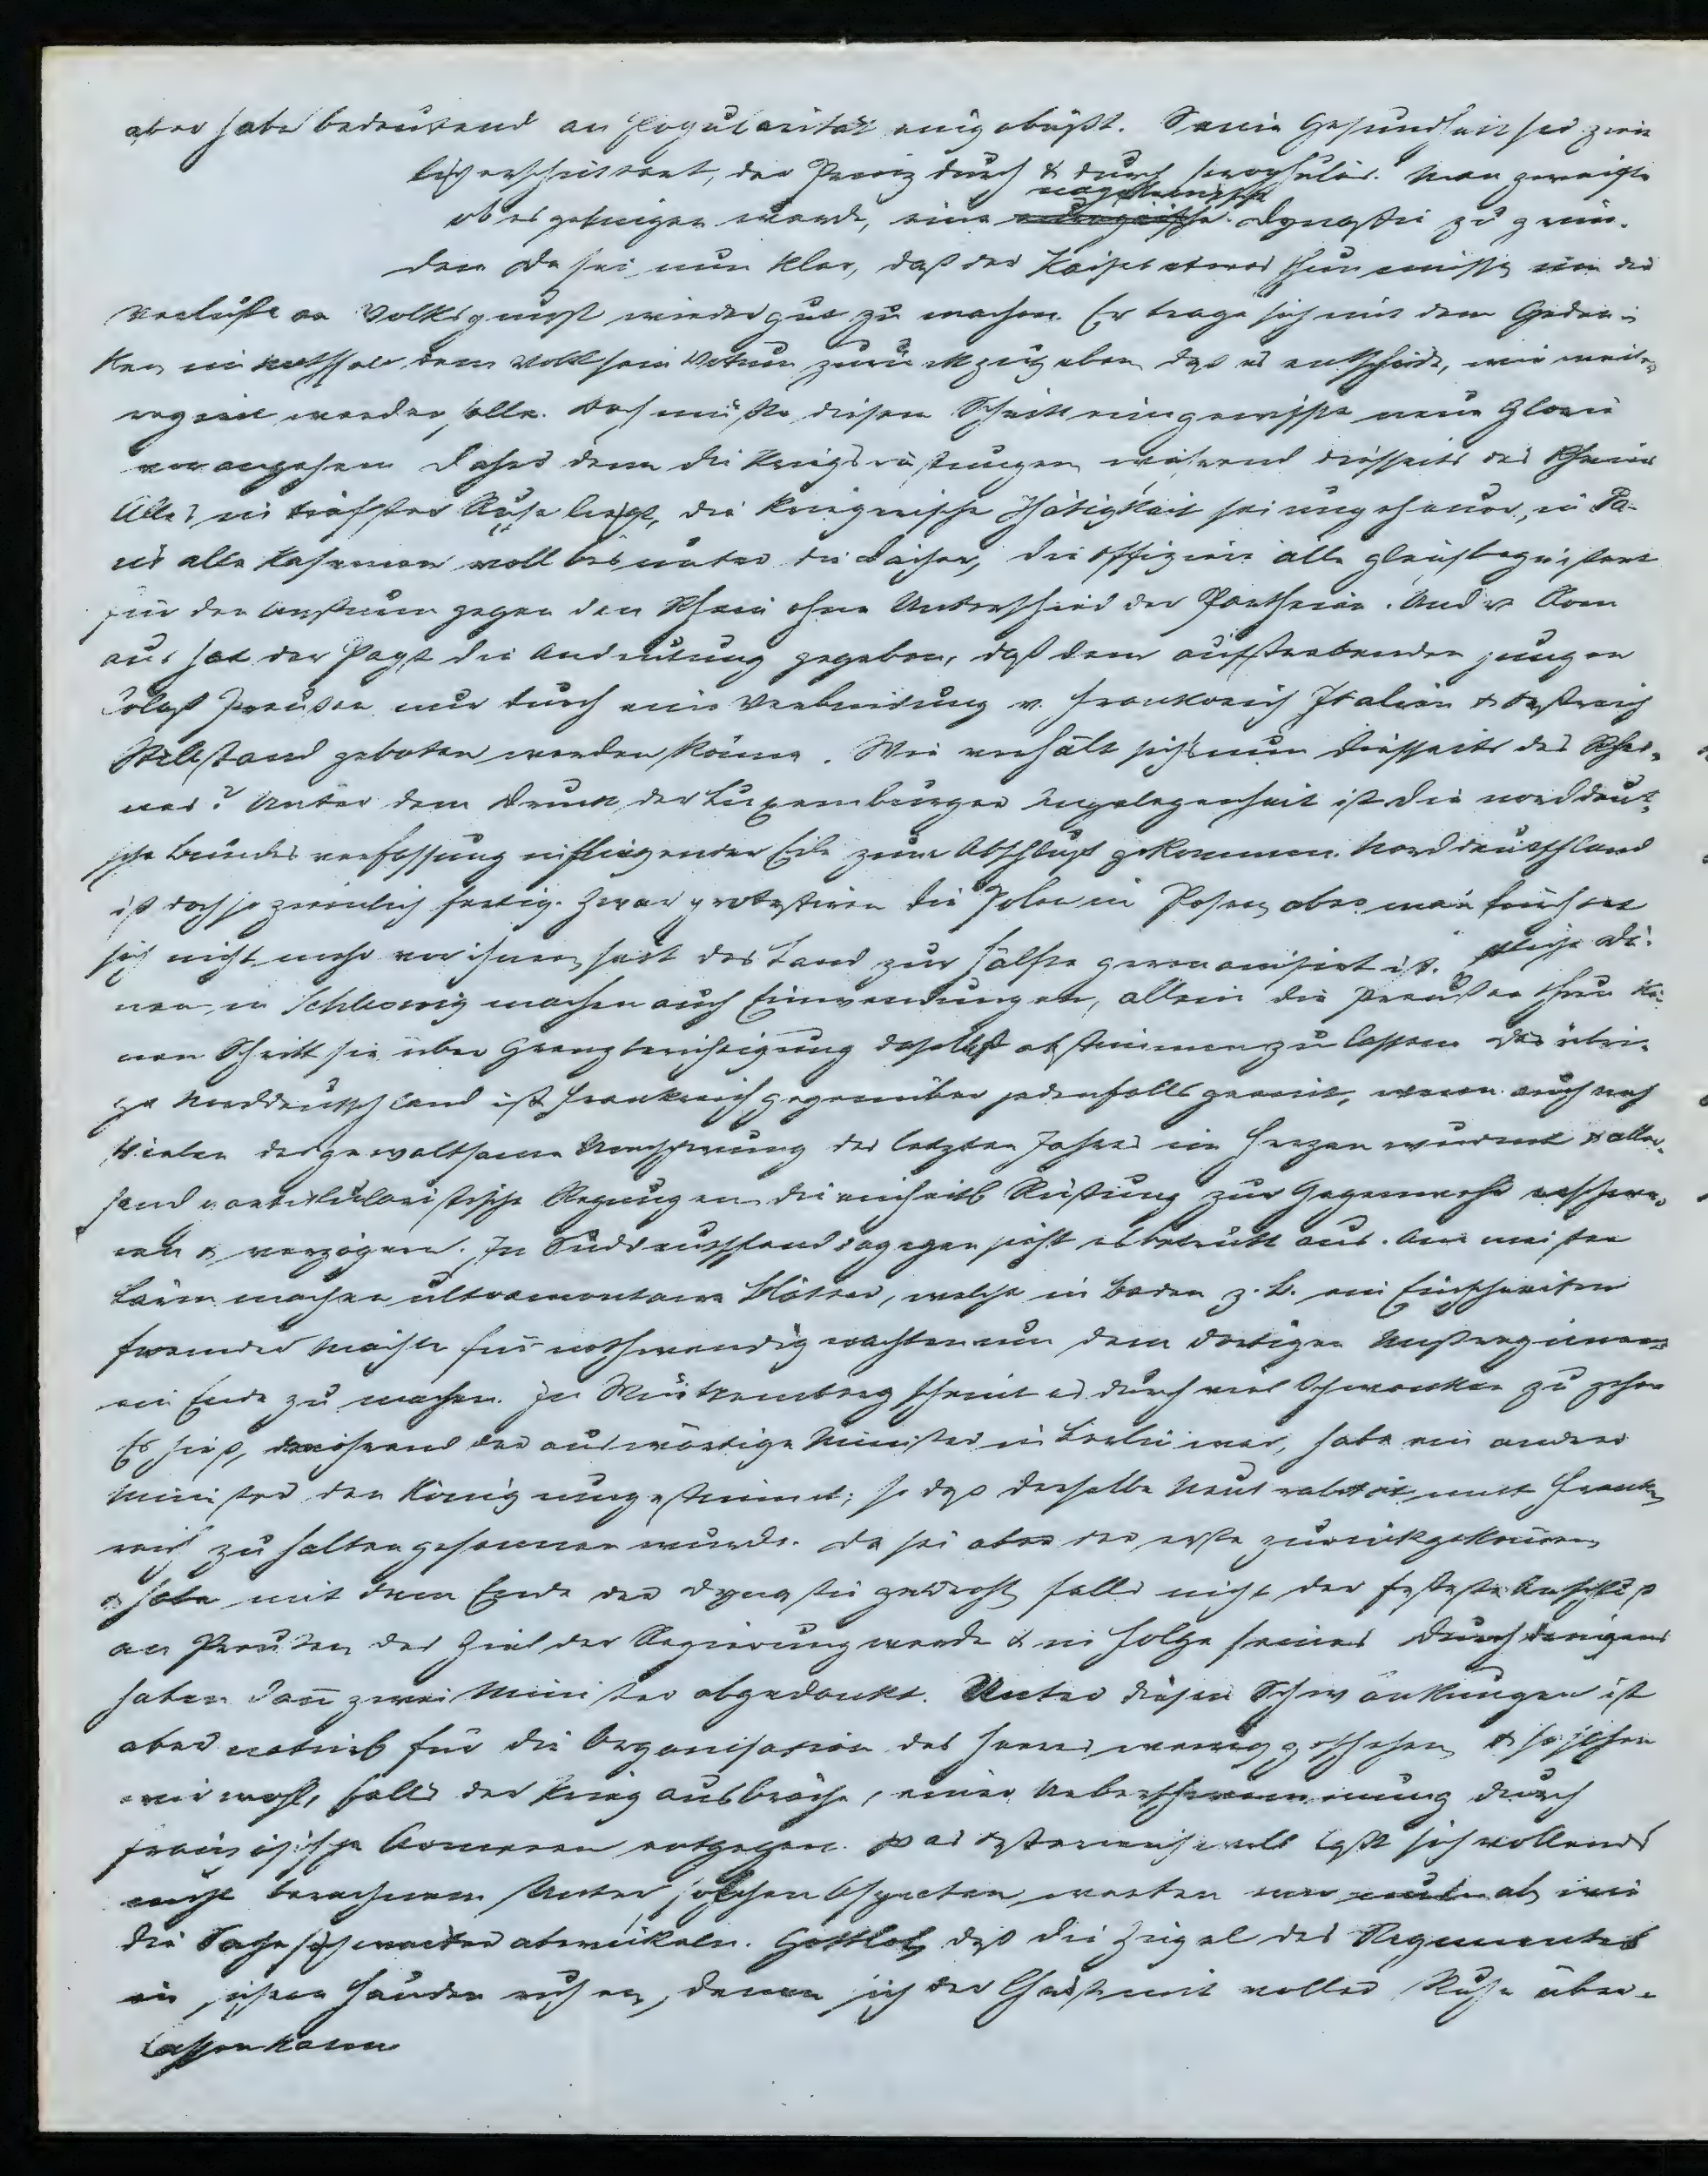 aber habe bedeutend an Popularität eingebüßt. Seine Gesundheit sei ziem
lich erschüttert, der Prinz durch & durch scrophulös. Man zweifle
ob es gelingen werde, eine napoleonische Dynastie zu grün-
den. Da sei nun klar, daß der Kaiser etwas thun müsse, um die
Verluste an Volksgunst wieder gut zu machen. Er trage sich mit dem Gedan-
ken, dem Volk sein Votum zurückzugeben, daß es entscheide, wie weiter
regiert werden solle. Doch müßte diesem Schritt eine gewisse neue Glorie
vorangehen. Daher denn die Kriegsrüstungen, während diesseits des Rheins
Alles in tiefster Ruhe liegt, die kriegerische Thätigkeit sei ungeheuer, in Pa-
ris alle Kasernen voll bis unter die Dächer, die Offiziere alle gleich begeistert
für den Ansturm gegen den Rhein ohne Unterschied der Partheien. Und v. Rom
aus hat der Papst die Andeutung gegeben, daß dem aufstrebenden jungen
Koloß Preußen nur durch eine Verbindung v. Frankreich Italien & Östreich
Stillstand geboten werden könne. Wie verhält sichs nun diesseits des Rhei-
nes? Unter dem Druck der Luxemburger Angelegenheit ist die norddeut-
sche Bundesverfassung in fliegender Eile zum Abschluß gekommen. Norddeutschland
ist doch so ziemlich fertig. Zwar protestiren die Polen in Posen, aber man fürchtet
sich nicht mehr vor ihnen, seit das Land zur Hälfte germanisirt ist. Etliche Dä-
nen in Schleswig machen auch Einwendungen, allein die Preußen thun kei-
nen Schritt sie über Grenzberichtigung daselbst abstimmen zu lassen. Das übri-
ge Norddeutschland ist Frankreich gegenüber jedenfalls geeint, wenn auch noch
Vielen der gewaltsame Umschwung des letzten Jahres im Herzen wurmt & aller-
hand partikularistische Regungen die einheitl. Rüstung zur Gegenwehr erschwe-
ren & verzögern. In Süddeutschland dagegen sieht es betrübt aus. Am meisten
Lärm machen ultramontane Blätter, welche in Baden z. B. ein Einschreiten
fremder Mächte für nothwendig erachten um dem dortigen Mißregiment
ein Ende zu machen. In Würtemberg scheint es durch viel Schwanken zu gehen
Es hieß, während der auswärtige Minister in Berlin war, habe ein anderer
Minister den König umgestimmt, so daß derselbe Neutralität mit Frank-
reich zu halten gesonnen wurde. Da sei aber der erste zurückgekommen
& habe mit dem Ende der Dynastie gedroht, falls nicht der festeste Anschluß
an Preußen das Ziel der Regierung werde & in Folge seines Durchdringens
haben dann zwei Minister abgedankt. Unter diesen Schwankungen ist
aber natürl. für die Organisation des Heeres wenig geschehen & so sehen
wir wohl, falls der Krieg ausbräche, einer Ueberschwemmung durch
französische Armeen entgegen. Das Österreich will läßt sich vollends
nicht berechnen. Unter solchen Aspecten warten wir ab, wie
die Tage sich weiter abwickeln. Gottlob, daß die Zügel des Regimentes
in sichern Händen ruhen, denen sich der Christ mit voller Ruhe über-
lassen kann